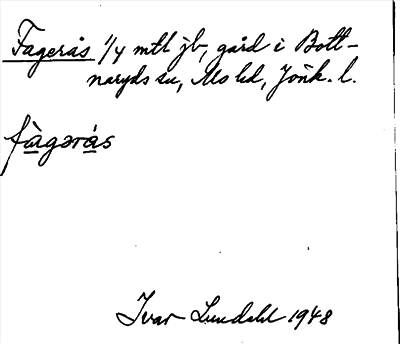 Fagerås 1/4 mtl jb, gård i Bott-
naryds sn, Mo hd, Jönk. l.
fàgərás
Ivar Lundahl 1948